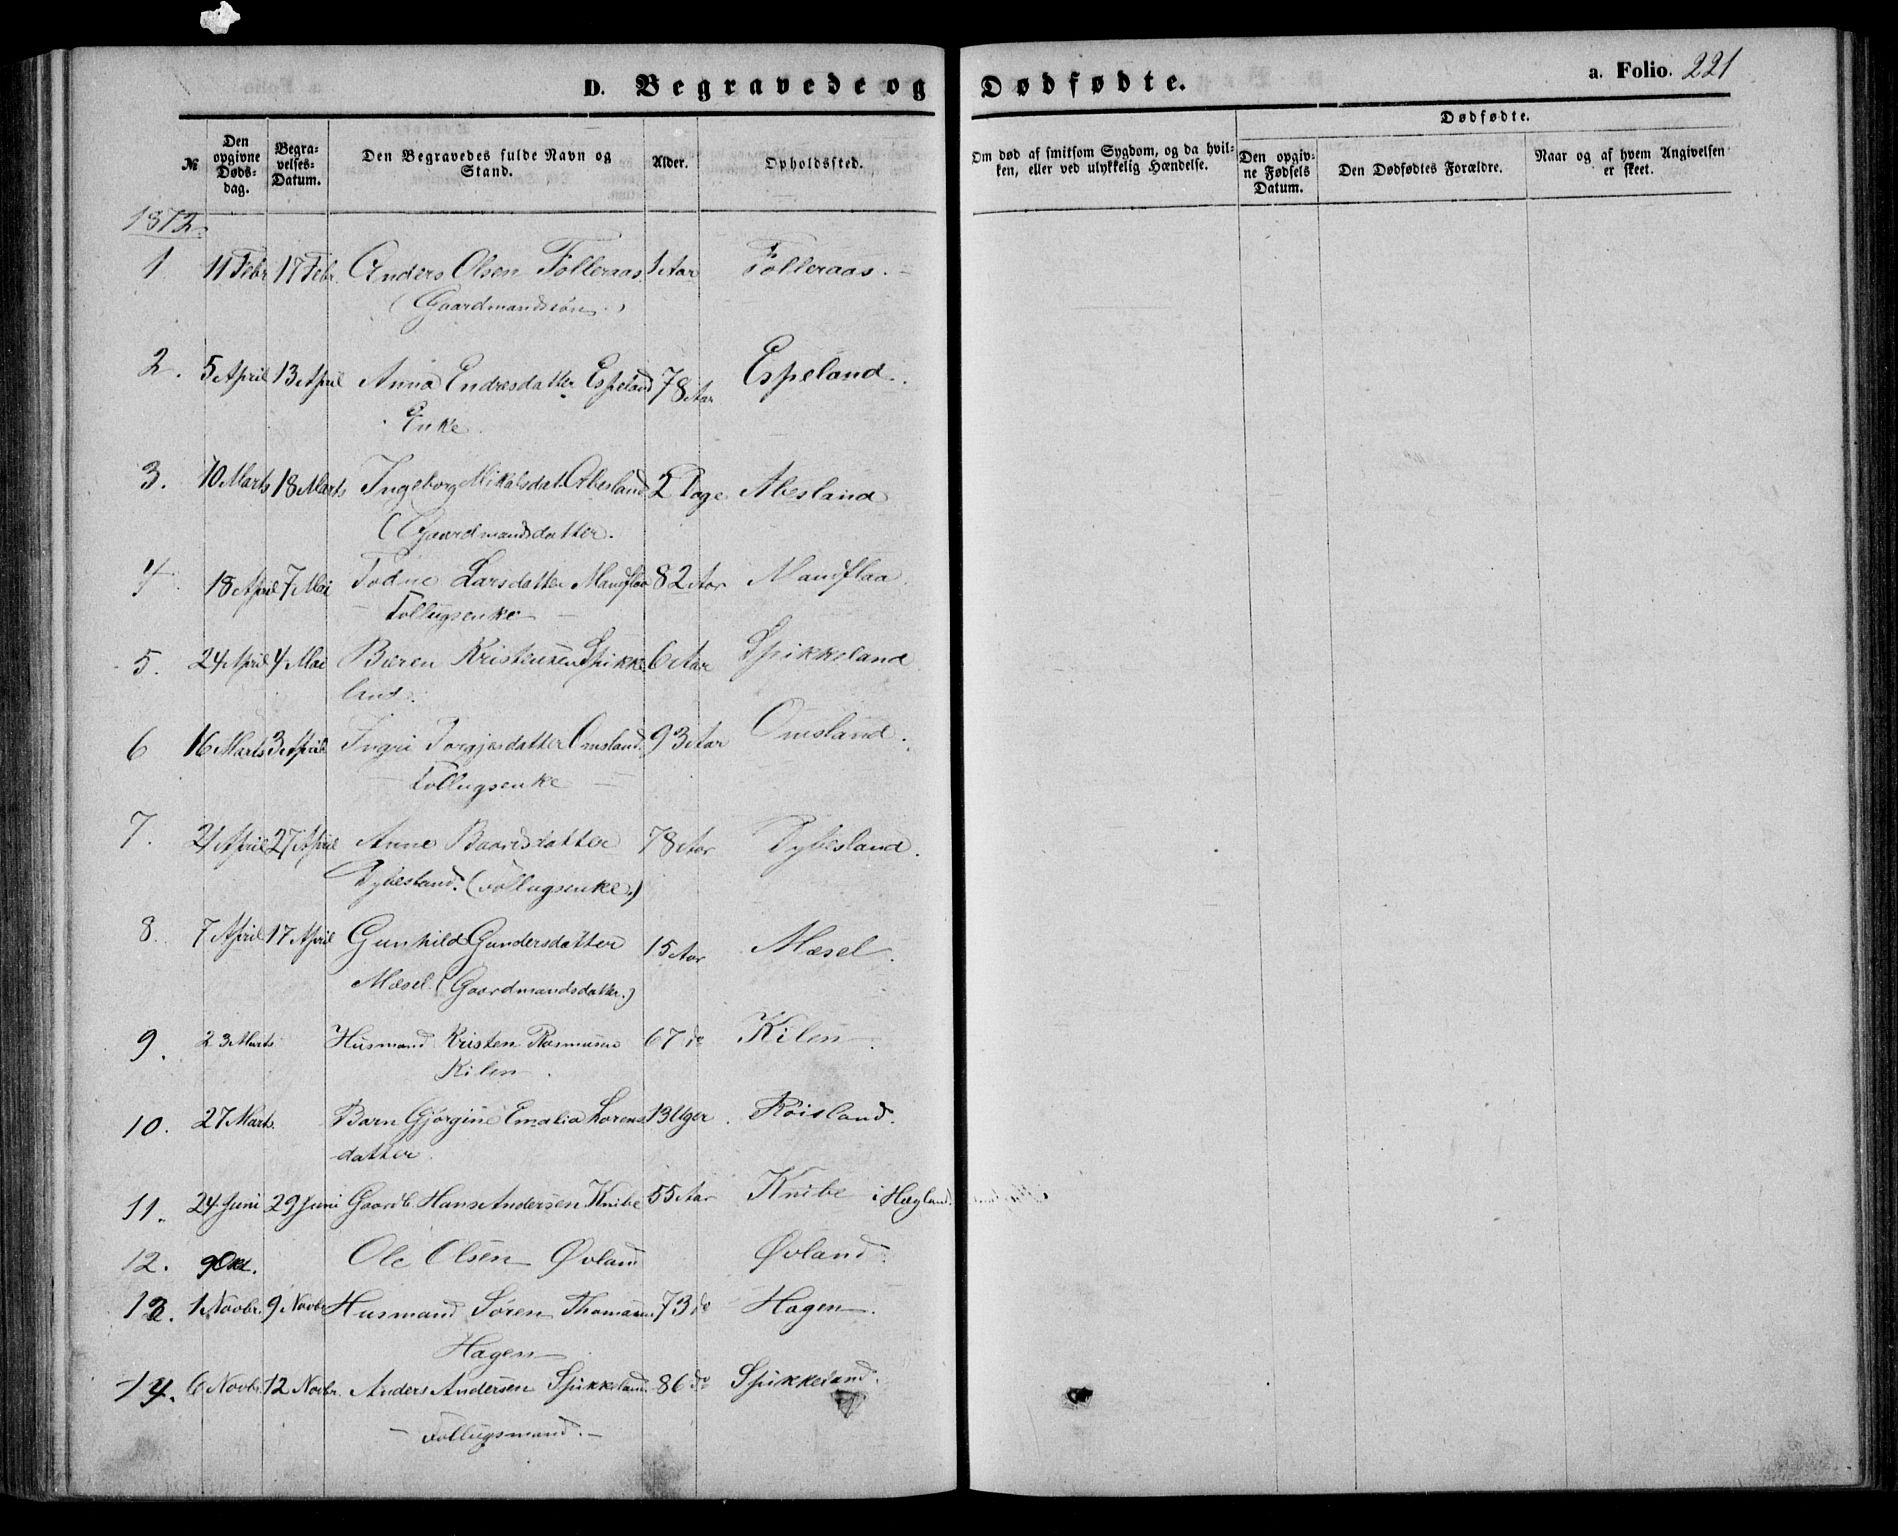 D. Begravede og Dødfødte.
a. Folio. 221
№
Den opgivne Døds-dag.
Begra-velses-Datum.
Den Begravedes fulde Navn og Stand.
Alder.
Opholdssted.
Om død af smitsom Sygdom, og da hvil-ken, eller ved ulykkelig Hændelse.
Dødfødte.
Den opgiv-ne Fødsels Datum.
Den Dødfødtes Forældre.
Naar og af hvem Angivelsen er skeet.
1872.
1 11 Febr 17 Febr. Anders Olsen Folleraas 1 Aar Folleraas.
(Gaardmandssøn.)
2. 5 April 13 April Anna Endresdatter Espeland 78 Aar Espeland.
Enke
3. 10 Marts 18 Marts Ingeborg Mikalsdat. Abesland 2 Dage Abesland
(Gaardmandsdatter.
4 18 April 7 Mai Todne Larsdatter Mandflaa 82 Aar Mandflaa.
- Follugsenke -
5. 24 April 4 Mai Bieren Kristensen Spikke 6 Aar Spikkeland
land.
6 16 Marts 3 April Ingri Torgjesdatter Omsland. 93 Aar Omsland.
- Follugsenke -
7. 21 April 27 April Anne Baardsdatter 78 Aar Dybesland.
Dybesland. (Follugsenke.)
8. 7 April 17 April Gunhild Gundersdatter 15 Aar Mæsel.
Mæsel. (Gaardmandsdatter.)
9. 23 Marts Husmand Kristen Rasmusen 67 do Kilen.
Kilen.
10. 27 Marts. Barn Gjørgine Emalia Lorens 13 Uger. Røisland.
datter.
11. 24 Juni 29 Juni Gaardb. Hans Andersen Knibe 55 Aar Knibe i Hægland.
12. 9 Okt. Ole Olsen Øvland Øvland.
13. 1 Novbr. 9 Novbr Husmand Søren Thomassen 73 do Hagen.
Hagen
14. 6 Novbr. 12 Novbr. Anders Andersen Spikkeland 86 do Spikkeland.
- Follugsmand. -